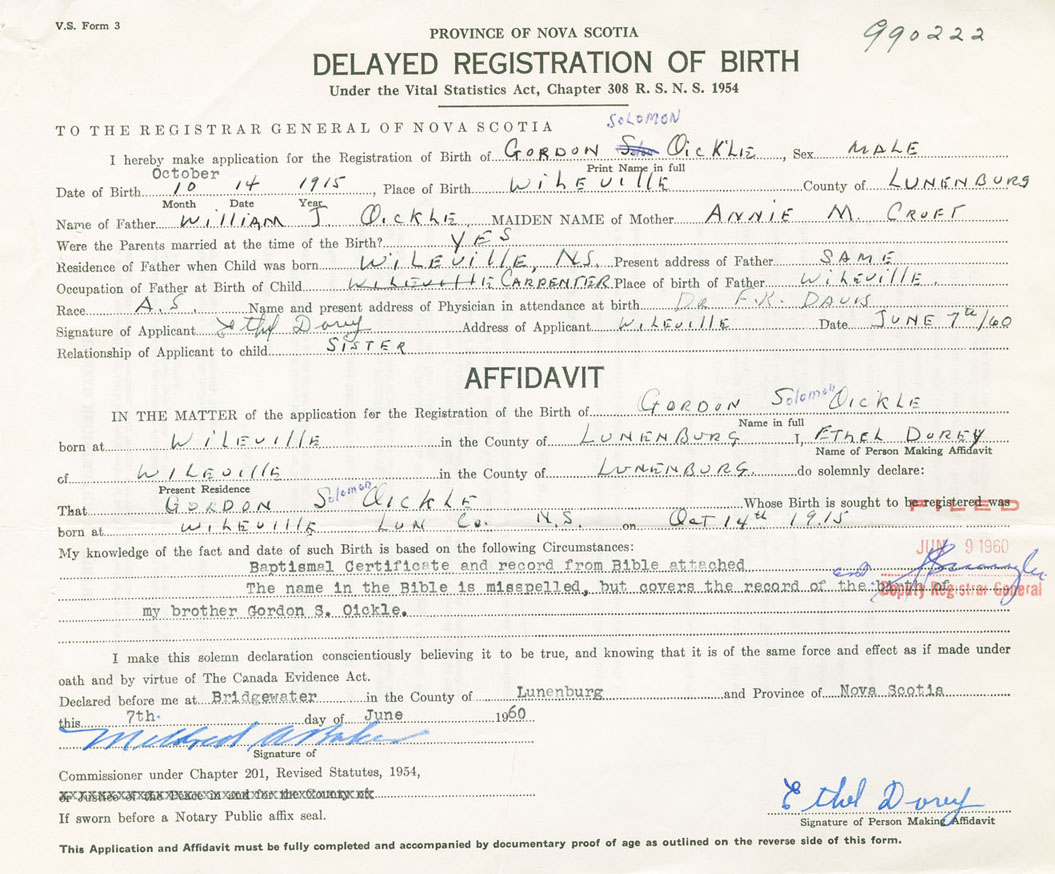 V.S. Form 3
990222
PROVINCE OF NOVA SCOTIA
DELAYED REGISTRATION OF BIRTH
Under the Vital Statistics Act, Chapter 308 R. S. N. S. 1954
TO THE REGISTRAR GENERAL OF NOVA SCOTIA
SOLOMON
I hereby make application for the Registration of Birth of GORDON OICKLE, Sex MALE
Print Name in full
October
Date of Birth 10 14 1915, Place of Birth WILEVILLE County of LUNENBURG
Month Date Year
Name of Father WILLIAM J OICKLE, MAIDEN NAME of Mother ANNIE M. CROFT
Were the Parents married at the time of the Birth? YES
Residence of Father when Child was born WILEVILLE, N.S. Present address of Father SAME
Occupation of Father at Birth of Child WILEVILLE CARPENTER Place of birth of Father WILEVILLE.
Race A.S. Name and present address of Physician in attendance at birth DR F.K. DAVIS
Signature of Applicant Ethel Dorey Address of Applicant WILEVILLE Date JUNE 7th/60
Relationship of Applicant to child SISTER
AFFIDAVIT
IN THE MATTER of the application for the Registration of the Birth of GORDON Solomon OICKLE
Name in full
born at WILEVILLE in the County of LUNENBURG I, ETHEL DOREY
Name of Person Making Affidavit
of WILEVILLE in the County of LUNENBURG. do solemnly declare:
Present Residence
That GORDON Solomon OICKLE Whose Birth is sought to be registered was
FILED
born at WILEVILLE LUN Co. N.S. on Oct 14th 1915
My knowledge of the fact and date of such Birth is based on the following Circumstances:
JUN 9 1960
Baptismal Certificate and record from Bible attached
The name in the Bible is misspelled, but covers the record of the birth of
Deputy Registrar General
my brother Gordon S. Oickle.
I make this solemn declaration conscientiously believing it to be true, and knowing that it is of the same force and effect as if made under
oath and by virtue of The Canada Evidence Act.
Declared before me at Bridgewater in the County of Lunenburg and Province of Nova Scotia
this 7th. day of June 1960
Mildred A Baker
Signature of
Commissioner under Chapter 201, Revised Statutes, 1954,
or Justice of the Peace in and for the County of
If sworn before a Notary Public affix seal.
Ethel Dorey
Signature of Person Making Affidavit
This Application and Affidavit must be fully completed and accompanied by documentary proof of age as outlined on the reverse side of this form.